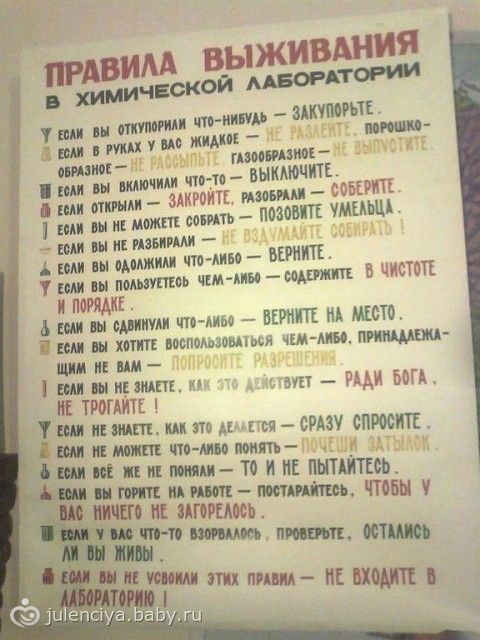 ПРАВИЛА ВЫЖИВАНИЯ
В ХИМИЧЕСКОЙ ЛАБОРАТОРИИ
ЕСЛИ ВЫ ОТКУПОРИЛИ ЧТО-НИБУДЬ — ЗАКУПОРЬТЕ.
ЕСЛИ В РУКАХ У ВАС ЖИДКОЕ — НЕ РАЗЛЕЙТЕ, ПОРОШКО-
ОБРАЗНОЕ — НЕ РАССЫПЬТЕ, ГАЗООБРАЗНОЕ — НЕ ВЫПУСТИТЕ.
ЕСЛИ ВЫ ВКЛЮЧИЛИ ЧТО-ТО — ВЫКЛЮЧИТЕ.
ЕСЛИ ОТКРЫЛИ — ЗАКРОЙТЕ, РАЗОБРАЛИ — СОБЕРИТЕ.
ЕСЛИ ВЫ НЕ МОЖЕТЕ СОБРАТЬ — ПОЗОВИТЕ УМЕЛЬЦА.
ЕСЛИ ВЫ НЕ РАЗБИРАЛИ — НЕ ВЗДУМАЙТЕ СОБИРАТЬ!
ЕСЛИ ВЫ ОДОЛЖИЛИ ЧТО-ЛИБО — ВЕРНИТЕ.
ЕСЛИ ВЫ ПОЛЬЗУЕТЕСЬ ЧЕМ-ЛИБО — СОДЕРЖИТЕ В ЧИСТОТЕ
И ПОРЯДКЕ.
ЕСЛИ ВЫ СДВИНУЛИ ЧТО-ЛИБО — ВЕРНИТЕ НА МЕСТО.
ЕСЛИ ВЫ ХОТИТЕ ВОСПОЛЬЗОВАТЬСЯ ЧЕМ-ЛИБО, ПРИНАДЛЕЖА-
ЩИМ НЕ ВАМ — ПОПРОСИТЕ РАЗРЕШЕНИЯ.
ЕСЛИ ВЫ НЕ ЗНАЕТЕ, КАК ЭТО ДЕЙСТВУЕТ — РАДИ БОГА,
НЕ ТРОГАЙТЕ!
ЕСЛИ НЕ ЗНАЕТЕ, КАК ЭТО ДЕЛАЕТСЯ — СРАЗУ СПРОСИТЕ.
ЕСЛИ НЕ МОЖЕТЕ ЧТО-ЛИБО ПОНЯТЬ — ПОЧЕШИ ЗАТЫЛОК.
ЕСЛИ ВСЁ ЖЕ НЕ ПОНЯЛИ — ТО И НЕ ПЫТАЙТЕСЬ.
ЕСЛИ ВЫ ГОРИТЕ НА РАБОТЕ — ПОСТАРАЙТЕСЬ, ЧТОБЫ У
ВАС НИЧЕГО НЕ ЗАГОРЕЛОСЬ.
ЕСЛИ У ВАС ЧТО-ТО ВЗОРВАЛОСЬ, ПРОВЕРЬТЕ, ОСТАЛИСЬ
ЛИ ВЫ ЖИВЫ.
ЕСЛИ ВЫ НЕ УСВОИЛИ ЭТИХ ПРАВИЛ — НЕ ВХОДИТЕ В
ЛАБОРАТОРИЮ!
julenciya.baby.ru